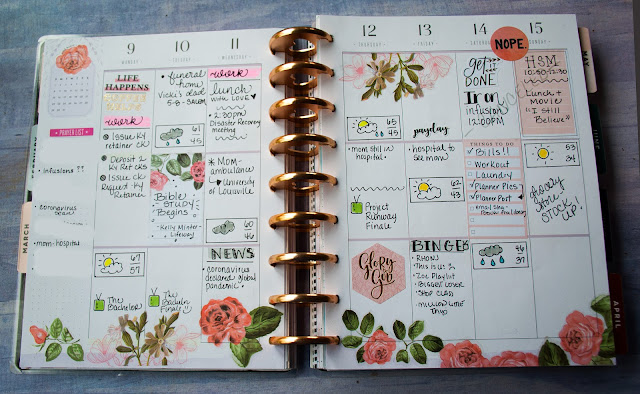 9
MONDAY
LIFE
HAPPENS
work
Issue Ky
retainer CK
Deposit 2
Ky Ret CKS
Issue CK
Request Ky
Retainer
67
57
The
Bachelor
10
TUESDAY
funeral
home
Vicki's dad
5-8 - SALEM
61
45
Bible
STUDY
Begins
- Kelly Minter -
Lifeway
The
Bachelor
Finale
11
WEDNESDAY
work
lunch
WITH LOVE
2:30PM
Disaster Recovery
meeting
MOM-
ambulance
University
of Louisville
60
46
NEWS
coronavirus
declared global
pandemic
PRAYER LIST
infusions ??
coronavirus
mom-hospital
MARCH
12
THURSDAY
65
45
mom still in
hospital
Project
Runway
Finale
Glory
to God
13
FRIDAY
payday
hospital to
see mom
62
43
BINGE
RHONJ
This is us
Zoe Playlist
BIGGEST LOSER
SHOP CLASS
MILLION LITTLE
THGS
14
get
it
DONE
Iron
infusion
12:00PM
THINGS TO DO
Bills!!
Workout
Laundry
Planner Pics
Planner Post
46
37
NOPE.
15
SUNDAY
HSM
10:30-12:30
Lunch +
MOVIE
"I Still
Believe"
53
34
Grocery
Store
STOCK
UP!
MAY
APRIL